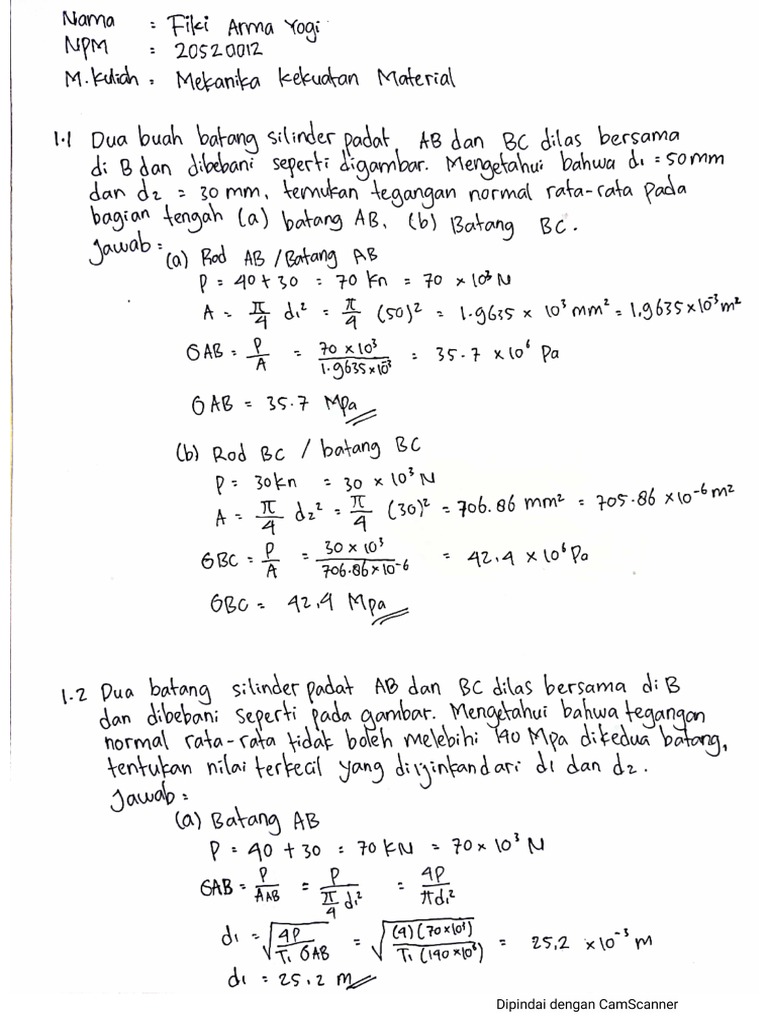 Nama : Fiki Arma Yogi
NPM : 20520012
M.Kuliah : Mekanika Kekuatan Material
1.1 Dua buah batang silinder padat AB dan BC dilas bersama
di B dan dibebani seperti digambar. Mengetahui bahwa d1 = 50mm
dan d2 = 30 mm, temukan tegangan normal rata-rata pada
bagian tengah (a) batang AB, (b) Batang BC.
Jawab :
(a) Rod AB / Batang AB
P = 40 + 30 = 70 kn = 70 × 10³ N
A = π/4 d1² = π/4 (50)² = 1.9635 × 10³ mm² = 1,9635 × 10⁻³ m²
σAB = P/A = 70 × 10³ / 1.9635 × 10⁻³ = 35.7 × 10⁶ Pa
σAB = 35.7 Mpa
(b) Rod BC / batang BC
P = 30 kn = 30 × 10³ N
A = π/4 d2² = π/4 (30)² = 706.86 mm² = 705.86 × 10⁻⁶ m²
σBC = P/A = 30 × 10³ / 706.86 × 10⁻⁶ = 42.4 × 10⁶ Pa
σBC = 42.4 Mpa
1.2 Dua batang silinder padat AB dan BC dilas bersama di B
dan dibebani seperti pada gambar. Mengetahui bahwa tegangan
normal rata-rata tidak boleh melebihi 140 Mpa dikedua batang,
tentukan nilai terkecil yang diijinkan dari d1 dan d2.
Jawab :
(a) Batang AB
P = 40 + 30 = 70 KN = 70 × 10³ N
σAB = P/AAB = P / π/4 d1² = 4P/πd1²
d1 = √4P/π σAB = √(4)(70×10³)/π (140×10⁶) = 25,2 × 10⁻³ m
d1 = 25.2 m
Dipindai dengan CamScanner